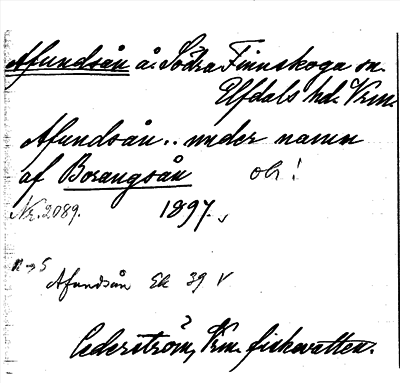 Afundsån å: Södra Finnskoga sn.
Elfdals hd. Vrm.
Afundsån .. under namn
af Borangsån obs!
Nr. 2089. 1897.
N→S
Afundsån Ek 39 V
Cederström, Vrm. fiskevatten.